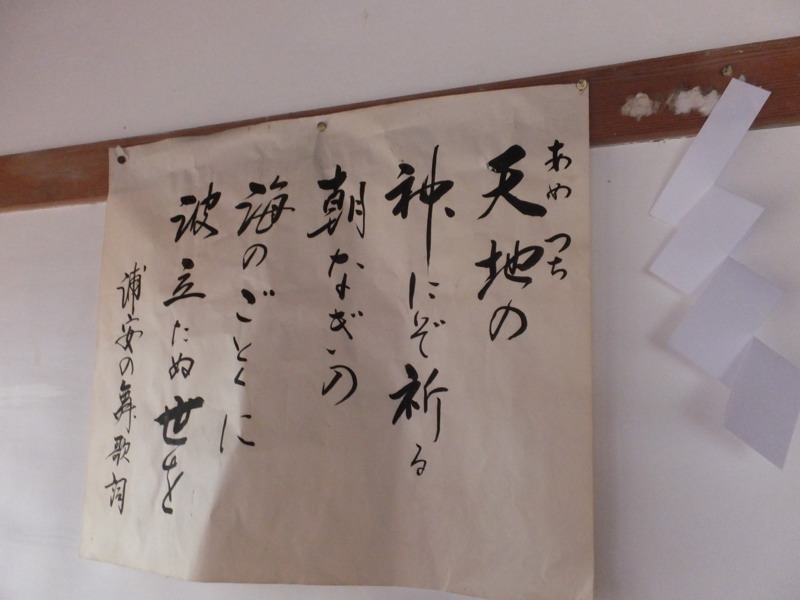 あめつち
天地の
神にぞ祈る
朝なぎの
海のごとくに
波立たぬ世を
浦安の舞歌詞